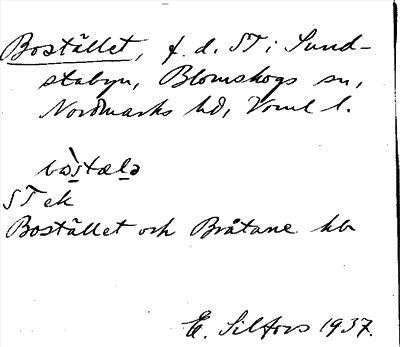 Bostället, f. d. ST i Sund-
stabyn, Blomskogs sn,
Nordmarks hd, Vrml l.
bo̱stæle̱
ST ek
Bostället och Bråtane hb
E. Silfors 1937.